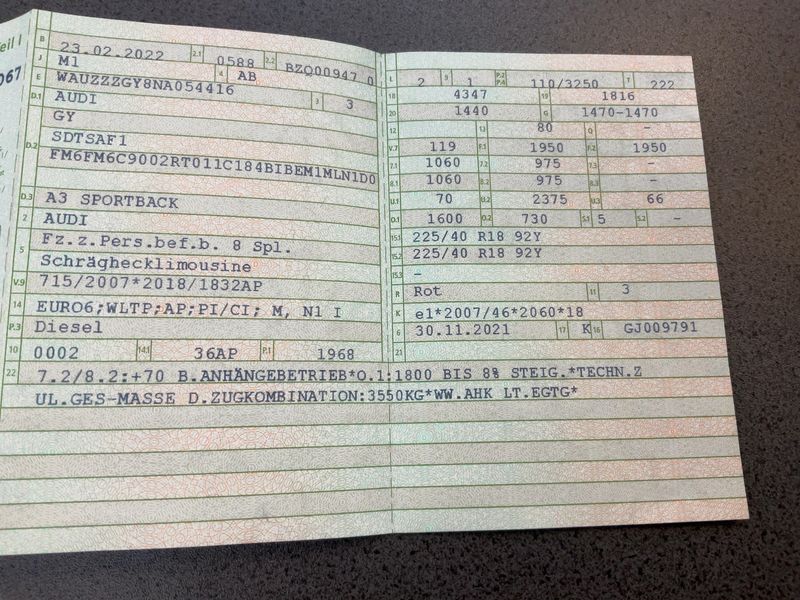 eil I
067
B 23.02.2022 2.1 0588 2.2 BZQ00947 0
J M1 4 AB
E WAUZZZGY8NA054416
D.1 AUDI 3 3
GY
D.2 SDTSAF1
FM6FM6C9002RT011C184BIBEM1MLN1D0
D.3 A3 SPORTBACK
2 AUDI
5 Fz.z.Pers.bef.b. 8 Spl.
Schräghecklimousine
V.9 715/2007*2018/1832AP
14 EURO6;WLTP;AP;PI/CI; M, N1 I
P.3 Diesel
10 0002 14.1 36AP P.1 1968
L 2 9 1 P.2 P.4 110/3250 T 222
18 4347 19 1816
20 1440 G 1470-1470
12 13 80 Q -
V.7 119 F.1 1950 F.2 1950
7.1 1060 7.2 975 7.3 -
8.1 1060 8.2 975 8.3 -
U.1 70 U.2 2375 U.3 66
O.1 1600 O.2 730 S.1 5 S.2 -
15.1 225/40 R18 92Y
15.2 225/40 R18 92Y
15.3 -
R Rot 11 3
K e1*2007/46*2060*18
6 30.11.2021 17 K 16 GJ009791
21
22 7.2/8.2:+70 B.ANHÄNGEBETRIEB*O.1:1800 BIS 8% STEIG.*TECHN.Z
UL.GES-MASSE D.ZUGKOMBINATION:3550KG*WW.AHK LT.EGTG*